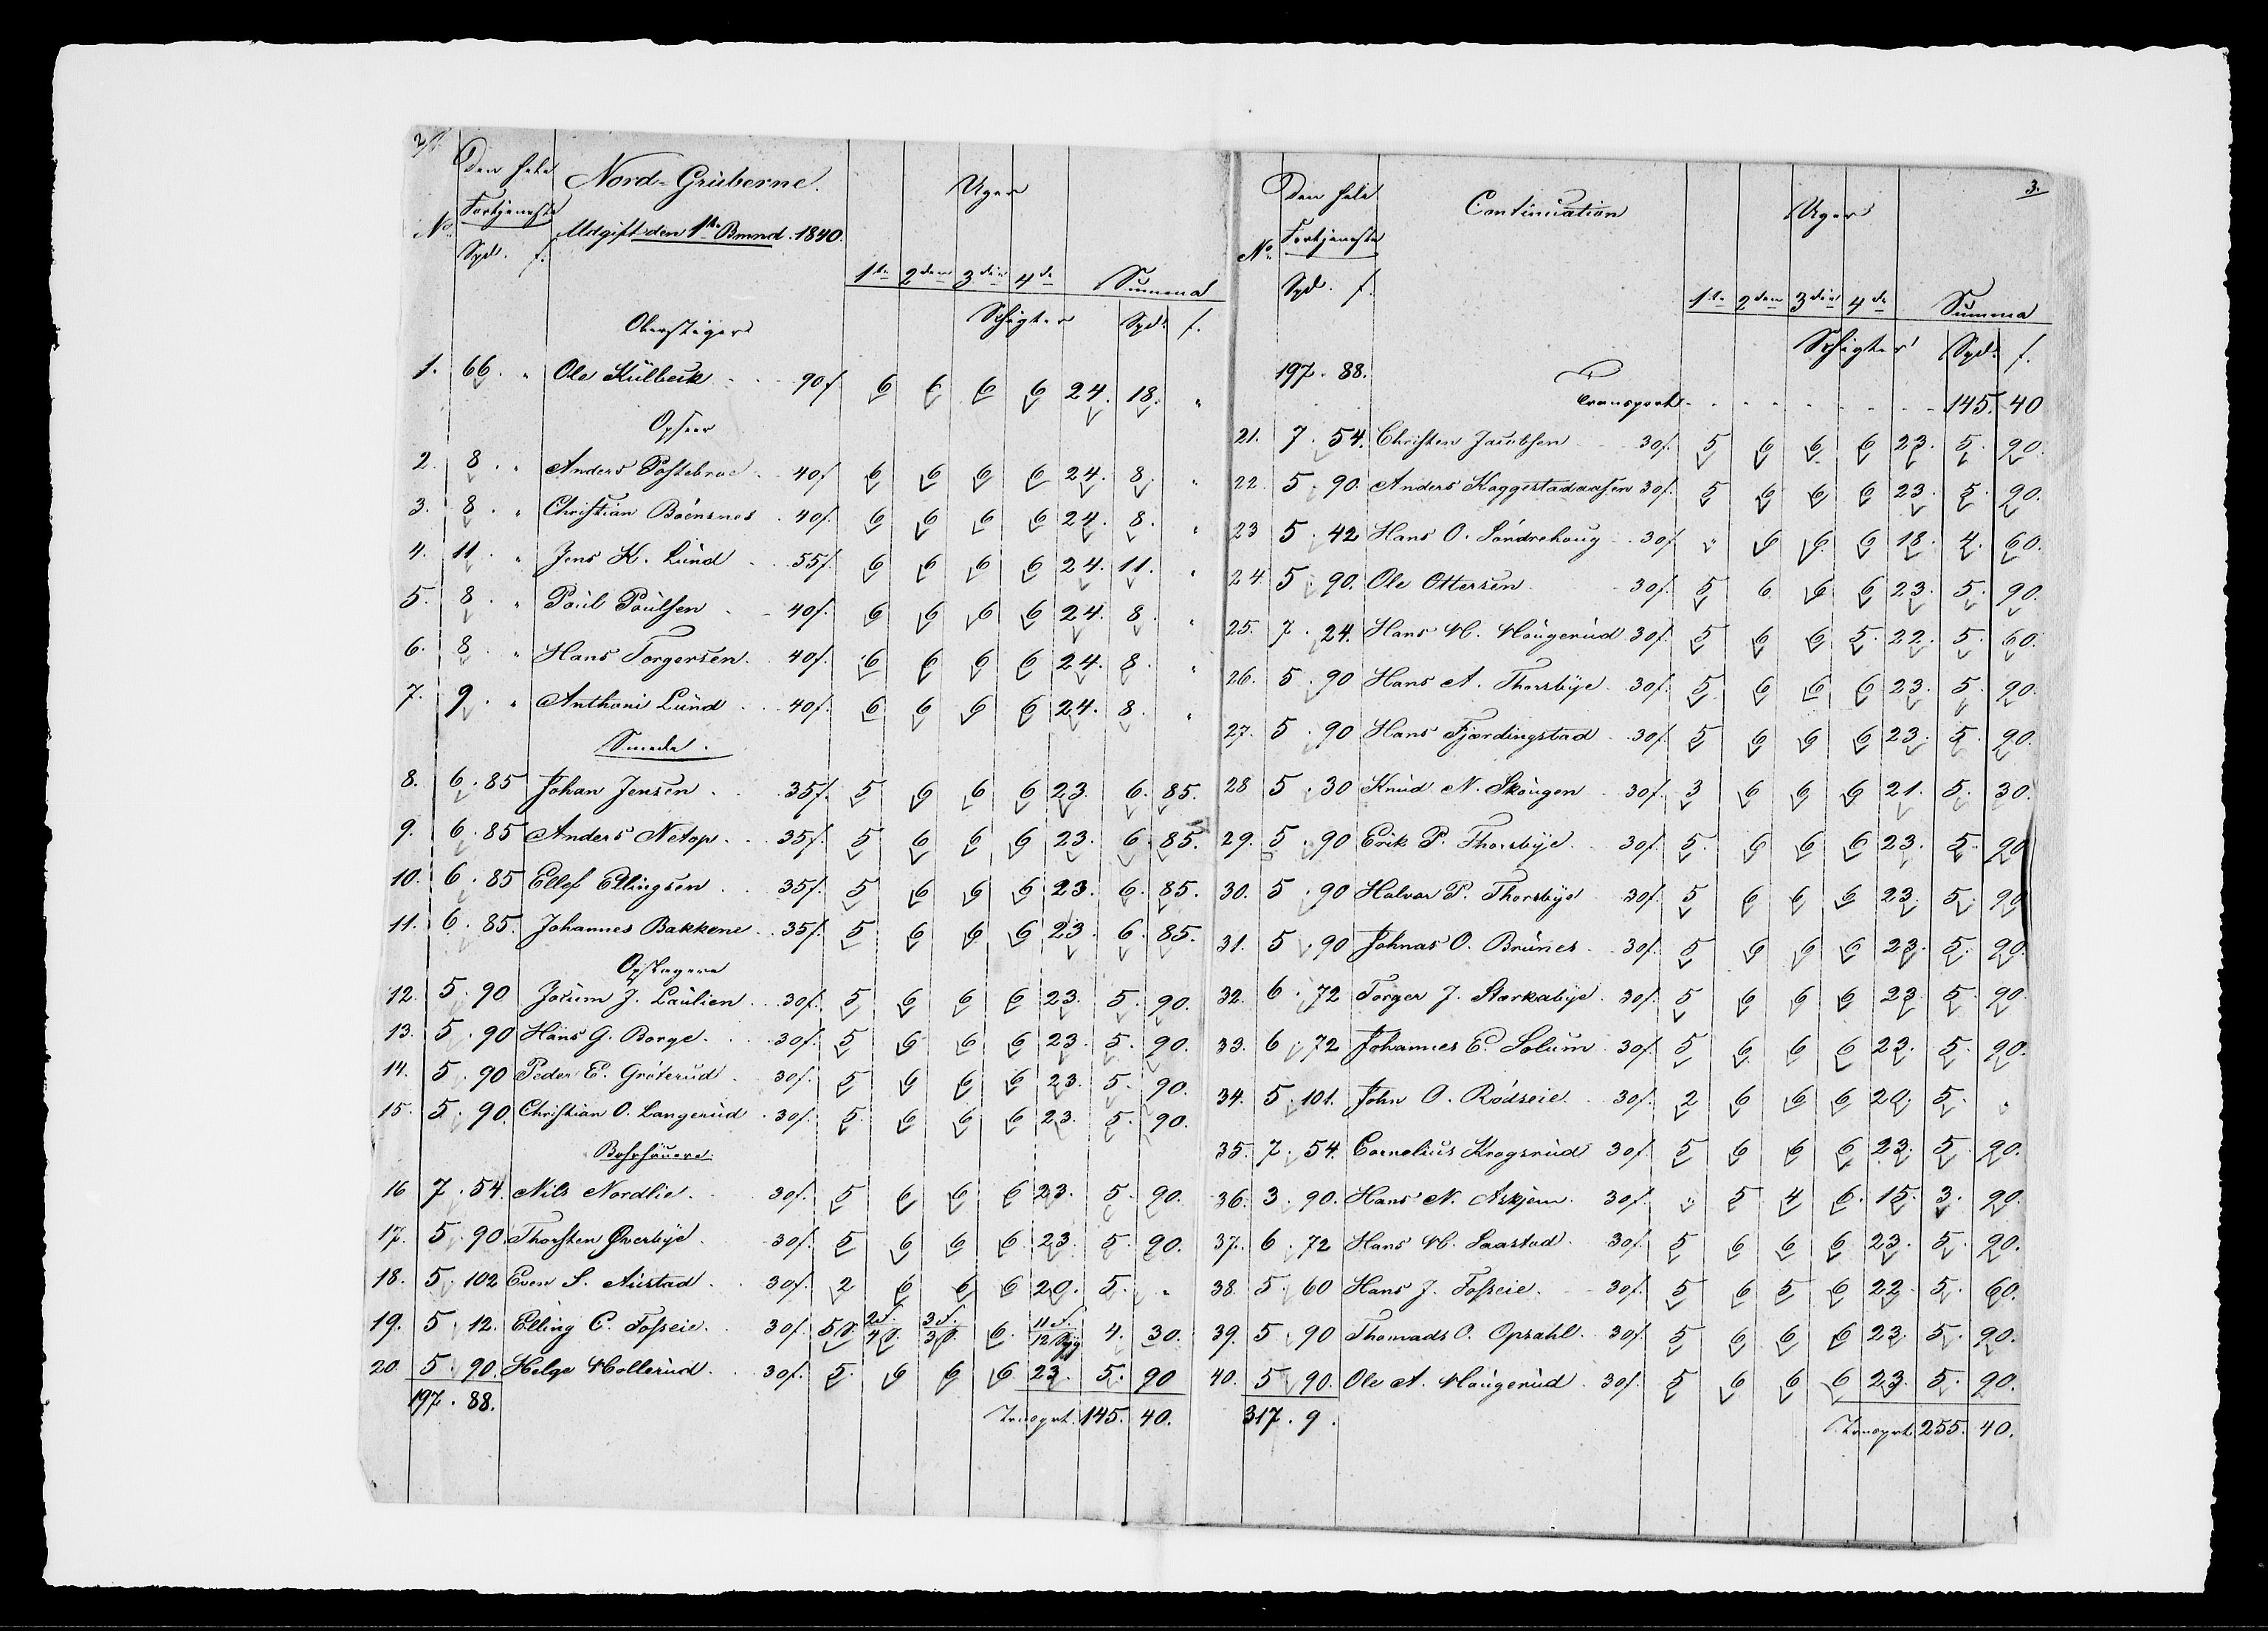 2.
Den hele Nord-Gruberne. Uger
Fortjeneste
No. Udgift den 1ste Bmnd. 1840.
Spd. f.
1te 2den 3die 4de Summa
Oberstiger Schigter Spd. f.
1. 66. " Ole Külbeck 90f 6 6 6 6 24. 18. "
Opseer
2. 8. " Anders Postebroe 40f 6 6 6 6 24. 8. "
3. 8. " Christian Böensnes 40f. 6 6 6 6 24. 8. "
4. 11. " Jens K. Lund 55f. 6 6 6 6 24. 11. "
5. 8. " Paul Paulsen 40f. 6 6 6 6 24. 8. "
6. 8. " Hans Torgersen. 40f. 6 6 6 6 24. 8. "
7. 9. " Anthoni Lund 40f. 6 6 6 6 24. 8. "
Smede.
8. 6. 85 Johan Jensen 35f. 5 6 6 6 23. 6. 85.
9. 6. 85 Anders Netop 35f. 5 6 6 6 23. 6. 85.
10. 6. 85 Ellef Ellingsen 35f. 5 6 6 6 23. 6. 85.
11. 6. 85. Johannes Bakkene 35f. 5 6 6 6 23. 6. 85.
12. 5. 90 Jorum J. Laulien 30f. 5 6 6 6 23. 5. 90.
13. 5. 90 Hans G. Borge. 30f. 5 6 6 6 23. 5. 90.
14. 5. 90 Peder E. Groterud 30f. 5 6 6 6 23. 5. 90.
15. 5. 90. Christian O. Langerud 30f. 5 6 6 6 23. 5. 90.
Bohrhauere.
16 7. 54. Nils Nordlie 30f. 5 6 6 6 23. 5. 90.
17. 5. 90. Thorsten Overbye 30f. 5 6 6 6 23. 5. 90.
18. 5. 102 Even S. Austad 30f. 2 6 6 6 20. 5. "
19. 5. 12. Elling C. Fosseie. 30f. 5 S. 2 f. 4 S. 3 f. 3 S. 6. 11 f. 12 Syg 4. 30.
20 5. 90. Helge Mollerud 30f. 5 6 6 6 23. 5. 90
197. 88. Trnsprt. 145. 40.
3.
Den hele Continuation Uger
Fortjeneste
No.
Spd. f.
1te 2den 3die 4de Summa
Schigter Spd. f.
197. 88.
Transport 145. 40
21. 7. 54. Christen Jacobsen 30f. 5 6 6 6 23. 5. 90.
22. 5. 90. Anders Kaggestadaasen 30f. 5 6 6 6 23. 5. 90.
23 5. 42 Hans O. Söndrehoug 30f " 6 6 6 18. 4. 60.
24. 5. 90. Ole Ottersen. 30f. 5 6 6 6 23. 5. 90.
25. 7. 24. Hans M. Mougerud 30f. 5 6 6 5 22. 5. 60.
26. 5. 90 Hans A. Thorsbye 30f. 5 6 6 6 23. 5. 90.
27. 5. 90 Hans Fjordingstad 30f. 5 6 6 6 23. 5. 90.
28 5. 30 Knud N. Skougen 30f. 3 6 6 6 21. 5. 30.
29. 5. 90 Erik P. Thorsbye. 30f. 5 6 6 6 23. 5. 90
30. 5. 90 Halvor P. Thorsbye 30f. 5 6 6 6 23. 5. 90
31. 5. 90 Johnas O. Brunes 30f. 5 6 6 6 23. 5. 90.
32. 6. 72 Torger J. Storkabye 30f. 5 6 6 6 23. 5. 90.
33. 6. 72 Johannes E. Solum 30f. 5 6 6 6 23. 5. 90.
34. 5. 101. John O. Rödseie. 30f. 2 6 6 6 20. 5. "
35. 7. 54. Cornelius Krogsrud 30f. 5 6 6 6 23. 5. 90.
36. 3. 90. Hans N. Askjem 30f. " 5 4 6. 15. 3. 90.
37. 6. 72 Hans M. Saastad 30f. 5 6 6 6 23. 5. 90.
38. 5. 60 Hans J. Fosseie. 30f. 5 6 5 6 22. 5. 60.
39. 5. 90 Thomads O. Opsahl 30f. 5 6 6 6 23. 5. 90.
40. 5. 90. Ole A. Mougerud 30f. 5 6 6 6 23. 5. 90.
317. 9. Trnsprt. 255. 40.